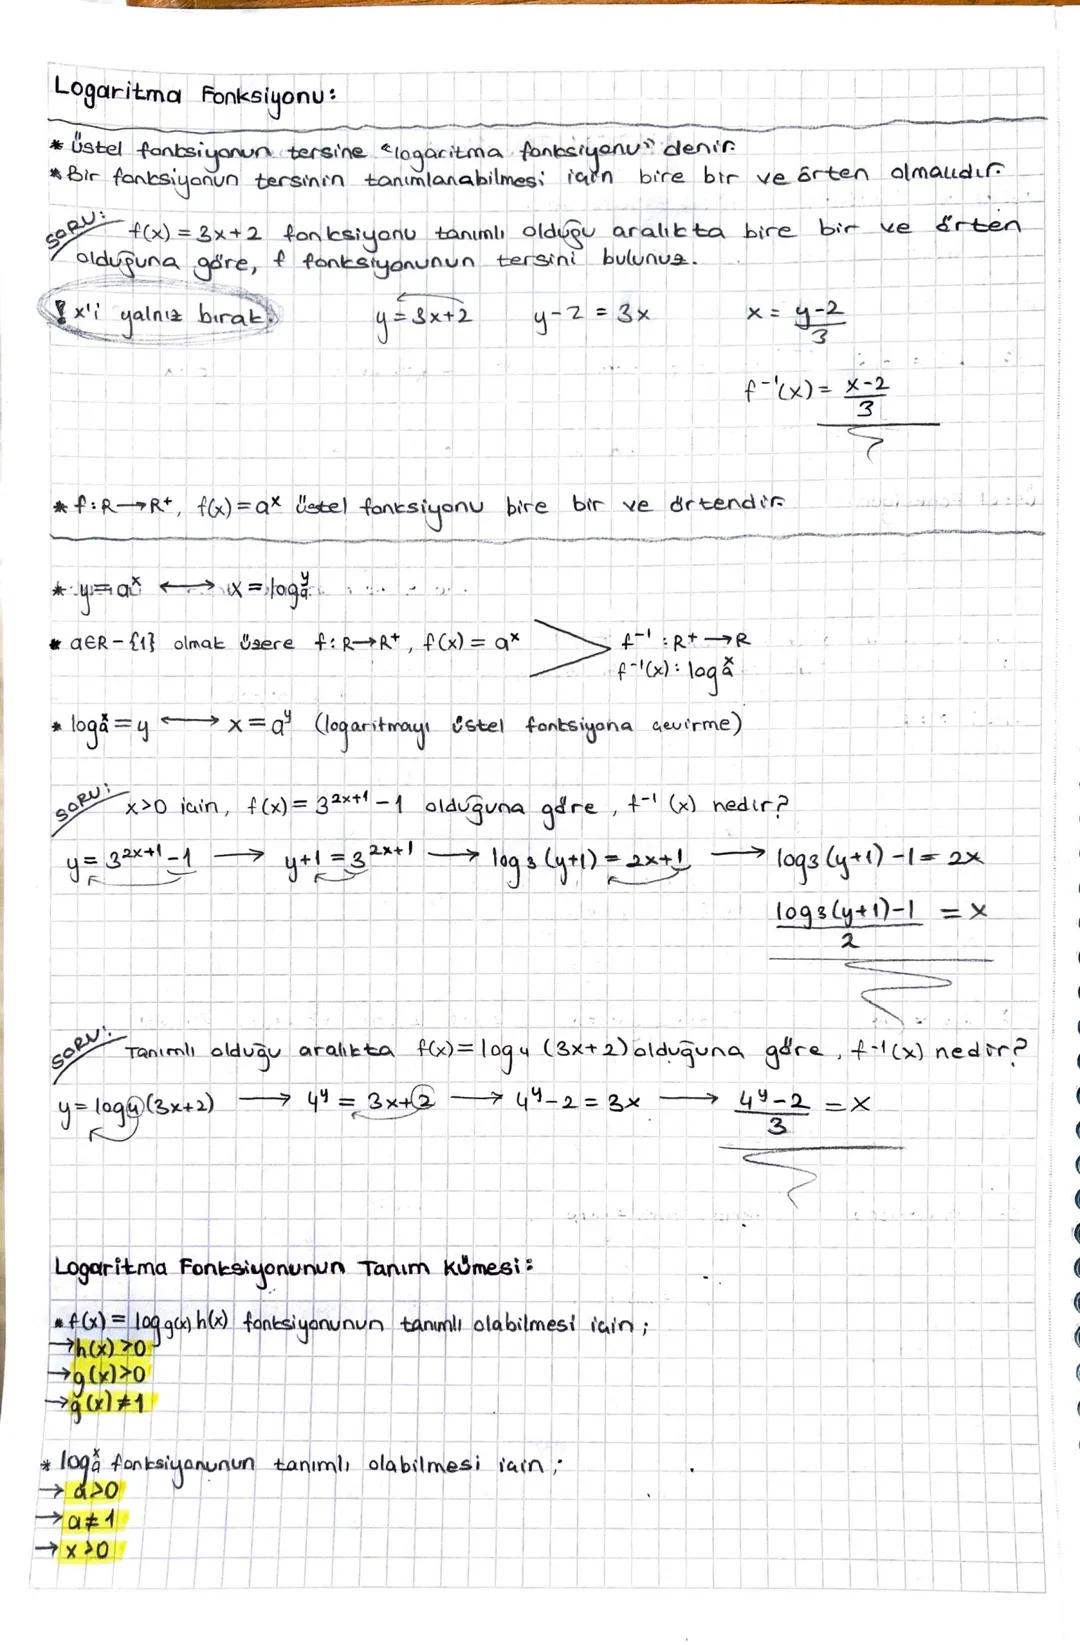 Logaritma Fonksiyonu:
* Üstel fonksiyonun tersine "logaritma fonksiyonu" denir.
* Bir fonksiyonun tersinin tanımlanabilmesi için bire bir ve örten olmalıdır.
SORU: f(x) = 3x+2 fonksiyonu tanımlı olduğu aralıkta bire bir ve örten
olduğuna göre, f fonksiyonunun tersini bulunuz.
! x'i yalnız bırak. y = 3x+2 y-2 = 3x x = (y-2)/3
f⁻¹(x) = (x-2)/3
* f:R→R⁺, f(x)=aˣ üstel fonksiyonu bire bir ve örtendir.
* y=aˣ ⟷ x = logₐʸ
* a∈R-{1} olmak üzere f:R→R⁺, f(x) = aˣ > f⁻¹:R⁺→R
f⁻¹(x): logₐˣ
* logₐˣ = y ⟷ x = aʸ (logaritmayı üstel fonksiyona çevirme)
SORU: x>0 için, f(x)= 3²ˣ⁺¹ -1 olduğuna göre, f⁻¹(x) nedir?
y= 3²ˣ⁺¹ -1 → y+1 = 3²ˣ⁺¹ → log₃(y+1) = 2x+1 → log₃(y+1) -1 = 2x
(log₃(y+1)-1)/2 = x
SORU: Tanımlı olduğu aralıkta f(x)=log₄ (3x+2) olduğuna göre, f⁻¹(x) nedir?
y= log₄(3x+2) → 4ʸ = 3x+2 → 4ʸ-2 = 3x → (4ʸ-2)/3 = x
Logaritma Fonksiyonunun Tanım Kümesi:
* f(x) = log g(x) h(x) fonksiyonunun tanımlı olabilmesi için;
→h(x) >0
→g(x)>0
→g(x)≠1
* logₐˣ fonksiyonunun tanımlı olabilmesi için;
→ a>0
→ a≠1
→ x>0